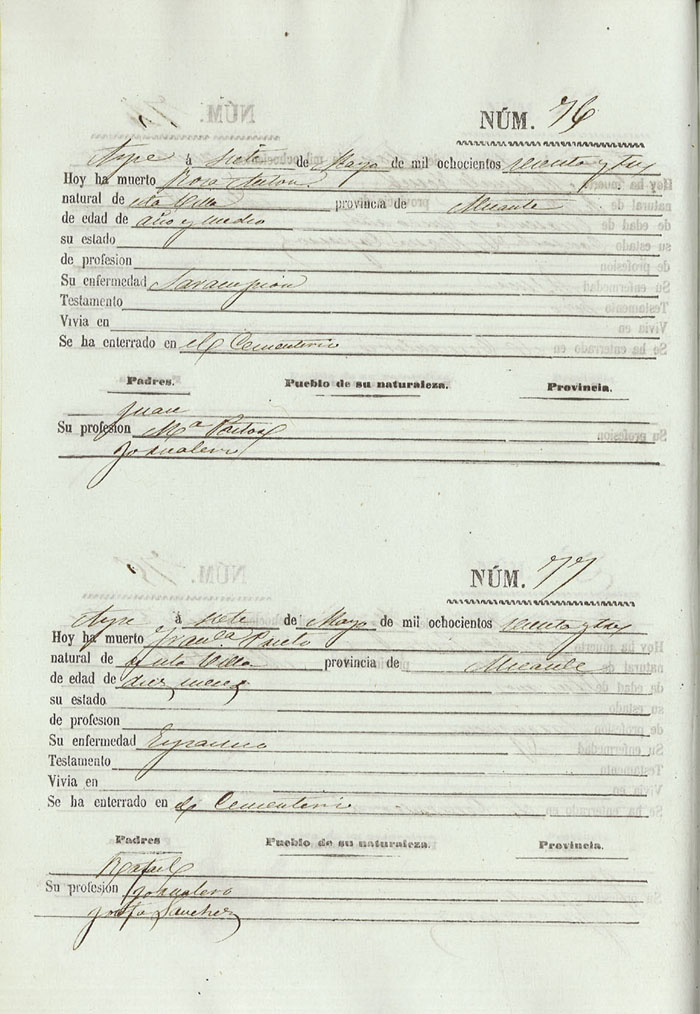 NÚM. 76
Aspe á siete de Mayo de mil ochocientos sesenta y tres
Hoy ha muerto Rosa Anton
natural de esta Villa provincia de Alicante
de edad de año y medio
su estado
de profesion
Su enfermedad Sarampion
Testamento
Vivia en
Se ha enterrado en el Cementerio
Padres. Pueblo de su naturaleza. Provincia.
Juan
Su profesion Mª Pastor
Jornalero
NÚM. 77
Aspe á siete de Mayo de mil ochocientos sesenta y tres
Hoy ha muerto Franca
natural de esta Villa provincia de Alicante
de edad de diez meses
su estado
de profesion
Su enfermedad
Testamento
Vivia en
Se ha enterrado en el Cementerio
Padres Pueblo de su naturaleza. Provincia.
Rafael
Su profesión Jornalero
Josefa Sanchez